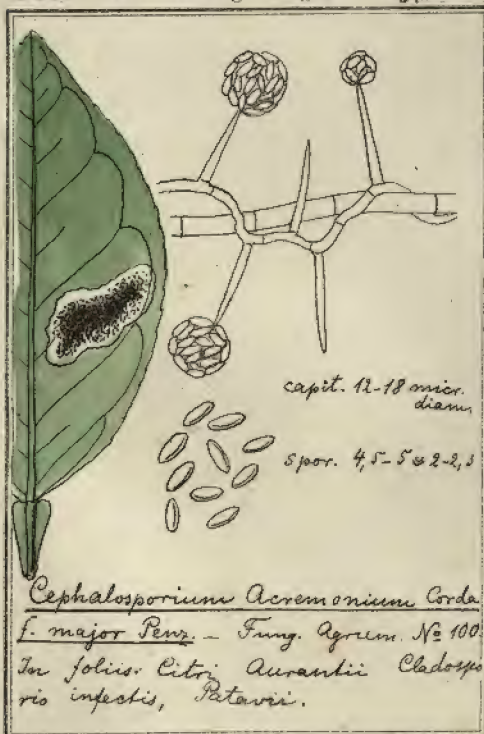 capit. 12-18 micr.
diam.
spor. 4,5-5 ≈ 2-2,3
Cephalosporium Acremonium Corda
f. major Penz. — Fung. Agrum. No 100.
In foliis Citri Aurantii Cladospo
rio infectis, Patavii.